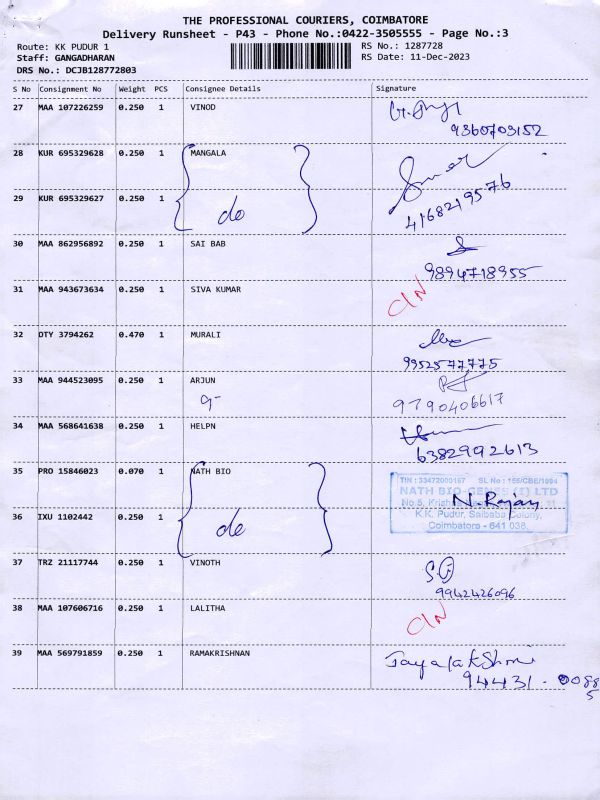 THE PROFESSIONAL COURIERS, COIMBATORE
Delivery Runsheet - P43 - Phone No.:0422-3505555 - Page No.:3
Route: KK PUDUR 1 RS No.: 1287728
Staff: GANGADHARAN RS Date: 11-Dec-2023
DRS No.: DCJB128772803
S No Consignment No Weight PCS Consignee Details Signature
27 MAA 107226259 0.250 1 VINOD
9360703152
28 KUR 695329628 0.250 1 MANGALA
29 KUR 695329627 0.250 1 do
4168219576
30 MAA 862956892 0.250 1 SAI BAB
9894718955
31 MAA 943673634 0.250 1 SIVA KUMAR C/N
32 DTY 3794262 0.470 1 MURALI
9952577775
33 MAA 944523095 0.250 1 ARJUN
9790406617
34 MAA 568641638 0.250 1 HELPN
6382992613
35 PRO 15846023 0.070 1 NATH BIO
TIN : 33472000167 SL No : 155/CBE/1994
NATH BIO-GENES (I) LTD
N. Rajan
No 5, 
K.K. Pudur, Saibaba Colony,
Coimbatore - 641 038.
36 IXU 1102442 0.250 1 do
37 TRZ 21117744 0.250 1 VINOTH
9942426096
38 MAA 107606716 0.250 1 LALITHA C/N
39 MAA 569791859 0.250 1 RAMAKRISHNAN Jayalakshmi
94431-0088
5